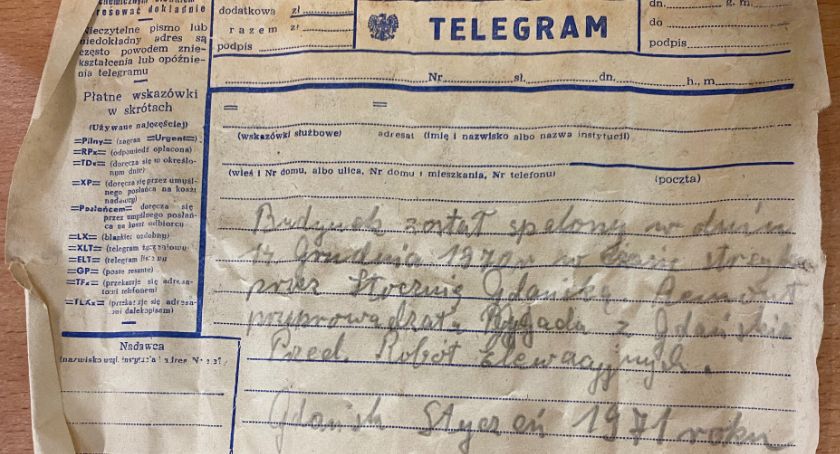 resować dokładnie
Nieczytelne pismo lub
niedokładny adres są
często powodem znie-
kształcenia lub opóźnie-
nia telegramu
Płatne wskazówki
w skrótach
(Używane najczęściej)
=Pilny= (zagran =Urgent=)
=RPx= (odpowiedź opłacona)
=TDx= (doręcza się w określo-
nym dnie)
=XP= (doręcza się przez umyśl-
nego posłańca na koszt
nadawcy)
=Posłańcem= doręcza się
przez umyślnego posłań-
ca na koszt odbiorcy
=LX= (blankiet ozdobny)
=XLT= (telegram
=ELT= (telegram
=GP= (poste restante)
=TFx= (przekazuje się adresa-
towi telefonem)
=TLXx= (przekazuje się adresa-
towi dalekopisem)
Nadawca
(nazwisko adres
dodatkowa zł
razem zł
podpis
TELEGRAM
dn. g. m.
do
podpis
Nr sł. dn. h., m.
= =
(wskazówki służbowe) adresat (imię i nazwisko albo nazwa instytucji)
(wieś i Nr domu, albo ulica, Nr domu i mieszkania, Nr telefonu) (poczta)
Budynek został spalony w dniu
14 Grudnia 1970r w czasie
przez Stocznię Gdańską. Remont
Bygada z Gdańskie
Przed. Robót Elewacyjnych.
Gdańsk Styczeń 1971 roku